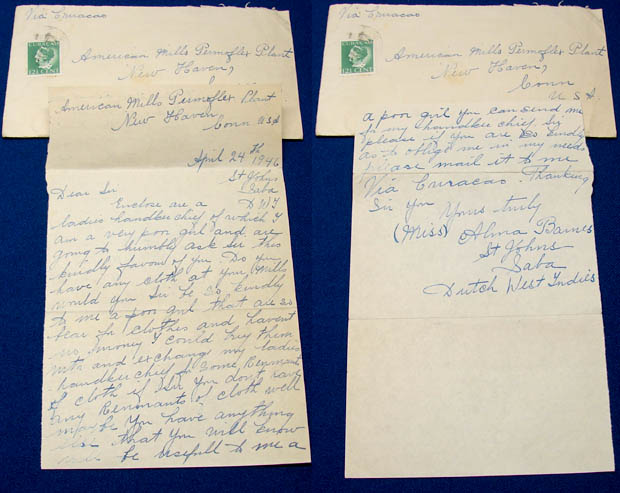 Via Curacao
CURACAO
12½ CENT
American Mills Permoflex Plant
New Haven,
American Mills Permoflex Plant
New Haven,
Conn U.S.A
April 24th 1946
St Johns
Saba
D W I
Dear Sir
Enclose are a
ladies handkerchief of which I
am a very poor girl and are
going to humbly ask sir this
kindly favour of you. Do you
have any cloth at you, Mills
would you Sir be so kindly
to me a poor girl that are so
bear in clothes and havent
no money I could buy them
into and exchange my ladies
handkerchief for some Remnant
of cloth if Sir you dont have
any Remnants of cloth well
maybe you have anything
Sir that you will know
be usefull to me a
Via Curacao
CURACAO
12½ CENT
American Mills Permoflex Plant
New Haven,
Conn
U S A
a poor girl you can send me
for my handkerchief Sir
please if you are so kindly
as to oblige me in my needs
please mail it to me
Via Curacao. Thanking
Sir you
Yours truly
(Miss) Alma Barnes
St Johns
Saba
Dutch West Indies